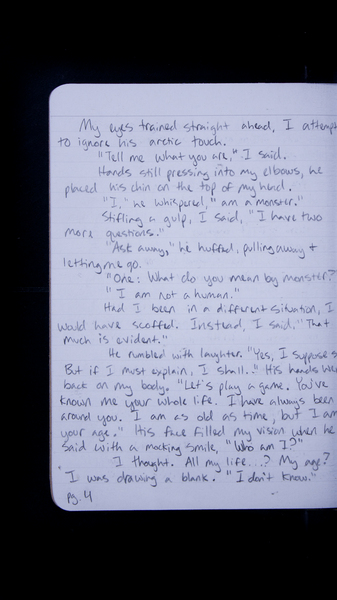 My eyes trained straight ahead, I attempt
to ignore his arctic touch.
"Tell me what you are," I said.
Hands still pressing into my elbows, he
placed his chin on the top of my head.
"I," he whispered, "am a monster."
Stifling a gulp, I said, "I have two
more questions."
"Ask away," he huffed, pulling away +
letting me go.
"One: What do you mean by monster?"
"I am not a human."
Had I been in a different situation, I
would have scoffed. Instead, I said. "That
much is evident."
He rumbled with laughter. "Yes, I suppose s
But if I must explain, I shall.." His hands wer
back on my body. "Let's play a game. You've
known me your whole life. I have always been
around you. I am as old as time, but I am
your age." His face filled my vision when he
said with a mocking smile, "Who am I?"
I thought. All my life...? My age?
I was drawing a blank. "I don't know."
pg. 4